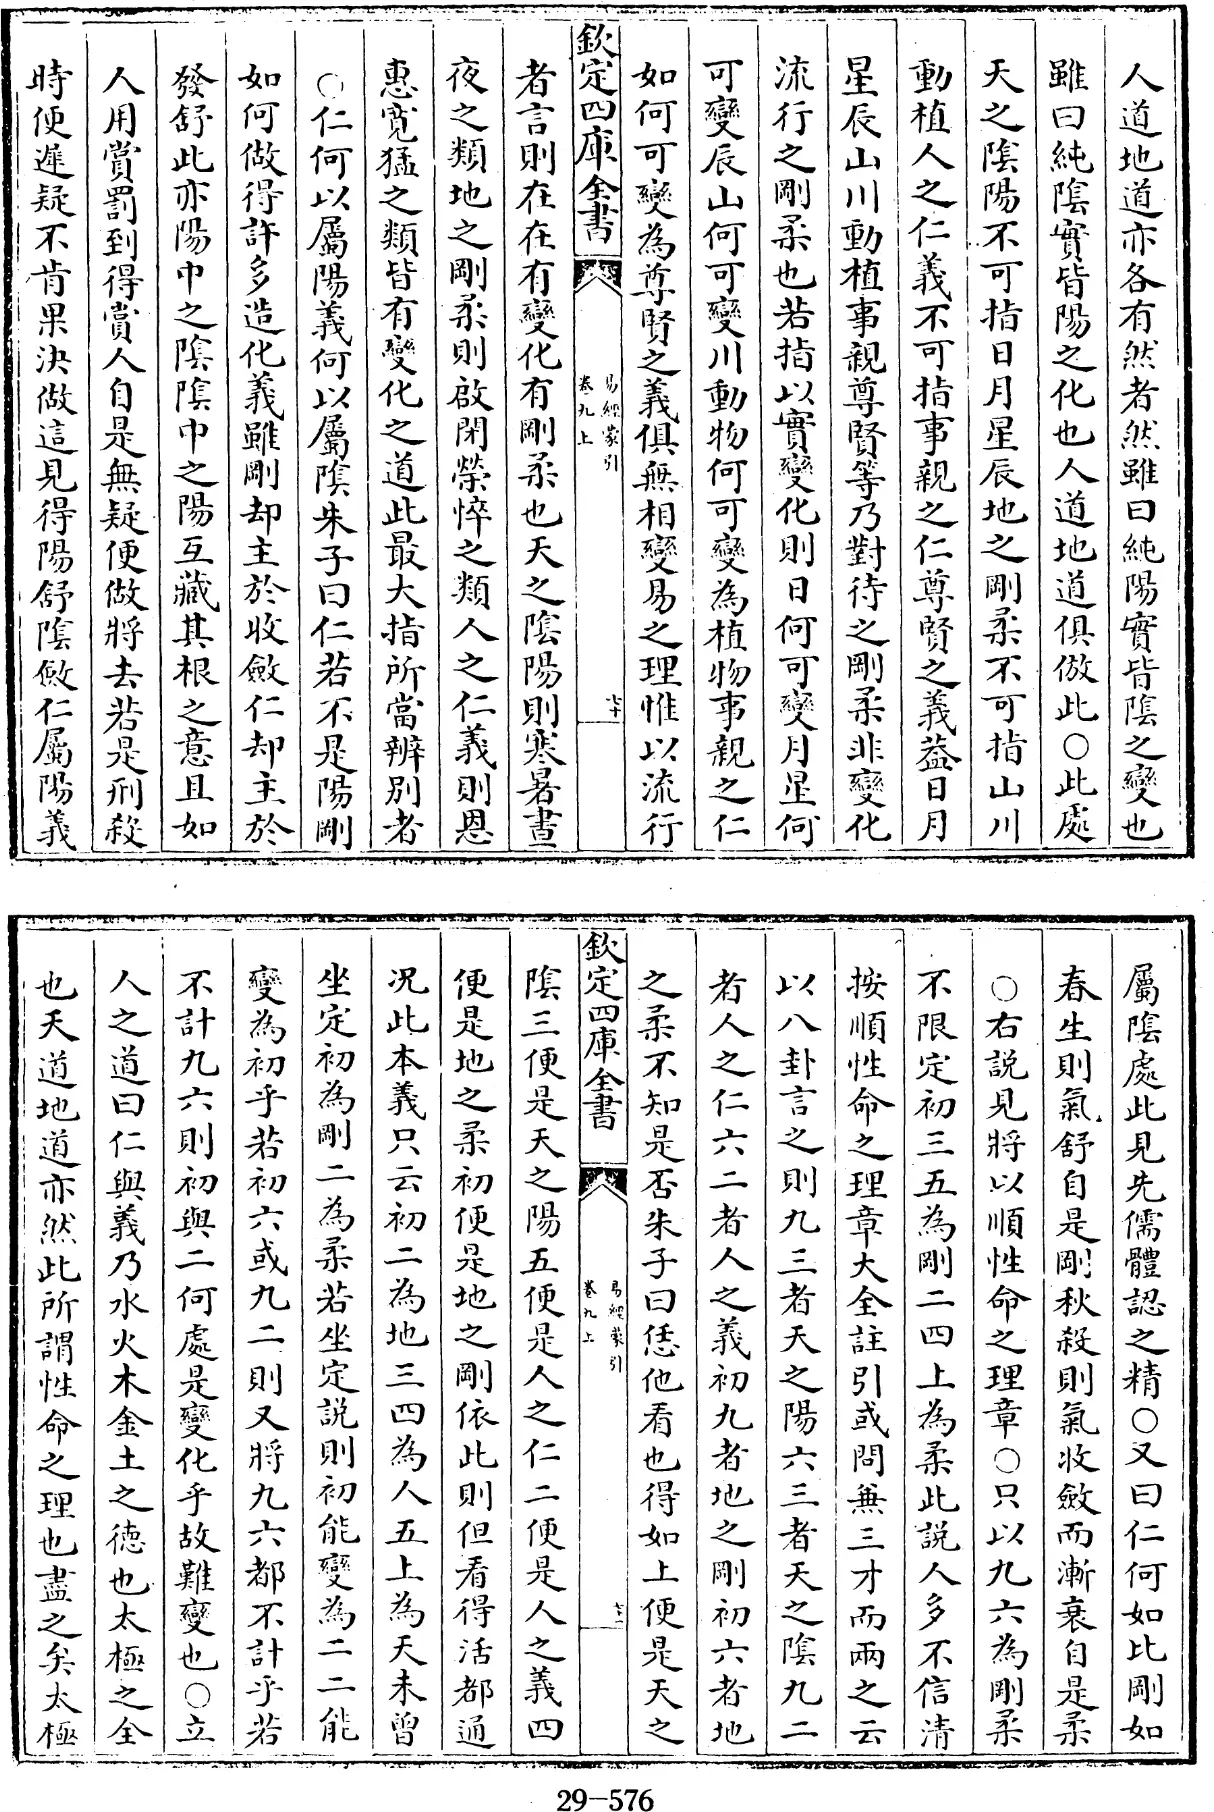 人道地道亦各有然者然雖曰純陽實皆陰之變也
雖曰純陰實皆陽之化也人道地道俱倣此○此處
天之陰陽不可指日月星辰地之剛柔不可指山川
動植人之仁義不可指事親之仁尊賢之義葢日月
星辰山川動植事親尊賢等乃對待之剛柔非變化
流行之剛柔也若指以實變化則日何可變月星何
可變辰山何可變川動物何可變為植物事親之仁
如何可變為尊賢之義俱無相變易之理惟以流行
欽定四庫全書
易經蒙引
卷九上
者言則在在有變化有剛柔也天之陰陽則寒暑晝
夜之類地之剛柔則啟閉榮悴之類人之仁義則恩
惠寛猛之類皆有變化之道此最大指所當辨别者
○仁何以屬陽義何以屬隂朱子曰仁若不是陽剛
如何做得許多造化義雖剛却主於收斂仁却主於
發舒此亦陽中之隂隂中之陽互藏其根之意且如
人用賞罰到得賞人自是無疑便做將去若是刑殺
時便遲疑不肯果決做這見得陽舒陰斂仁屬陽義
屬陰處此見先儒體認之精○又曰仁何如比剛如
春生則氣舒自是剛秋殺則氣收斂而漸衰自是柔
○右説見將以順性命之理章○只以九六為剛柔
不限定初三五為剛二四上為柔此説人多不信清
按順性命之理章大全註引或問兼三才而兩之云
以八卦言之則九三者天之陽六三者天之陰九二
者人之仁六二者人之義初九者地之剛初六者地
之柔不知是否朱子曰恁他看也得如上便是天之
欽定四庫全書
易經蒙引
卷九上
陰三便是天之陽五便是人之仁二便是人之義四
便是地之柔初便是地之剛依此則但看得活都通
况此本義只云初二為地三四為人五上為天未曾
坐定初為剛二為柔若坐定説則初能變為二二能
變為初乎若初六或九二則又將九六都不計乎若
不計九六則初與二何處是變化乎故難變也○立
人之道曰仁與義乃水火木金土之德也太極之全
也天道地道亦然此所謂性命之理也盡之矣太極
29-576